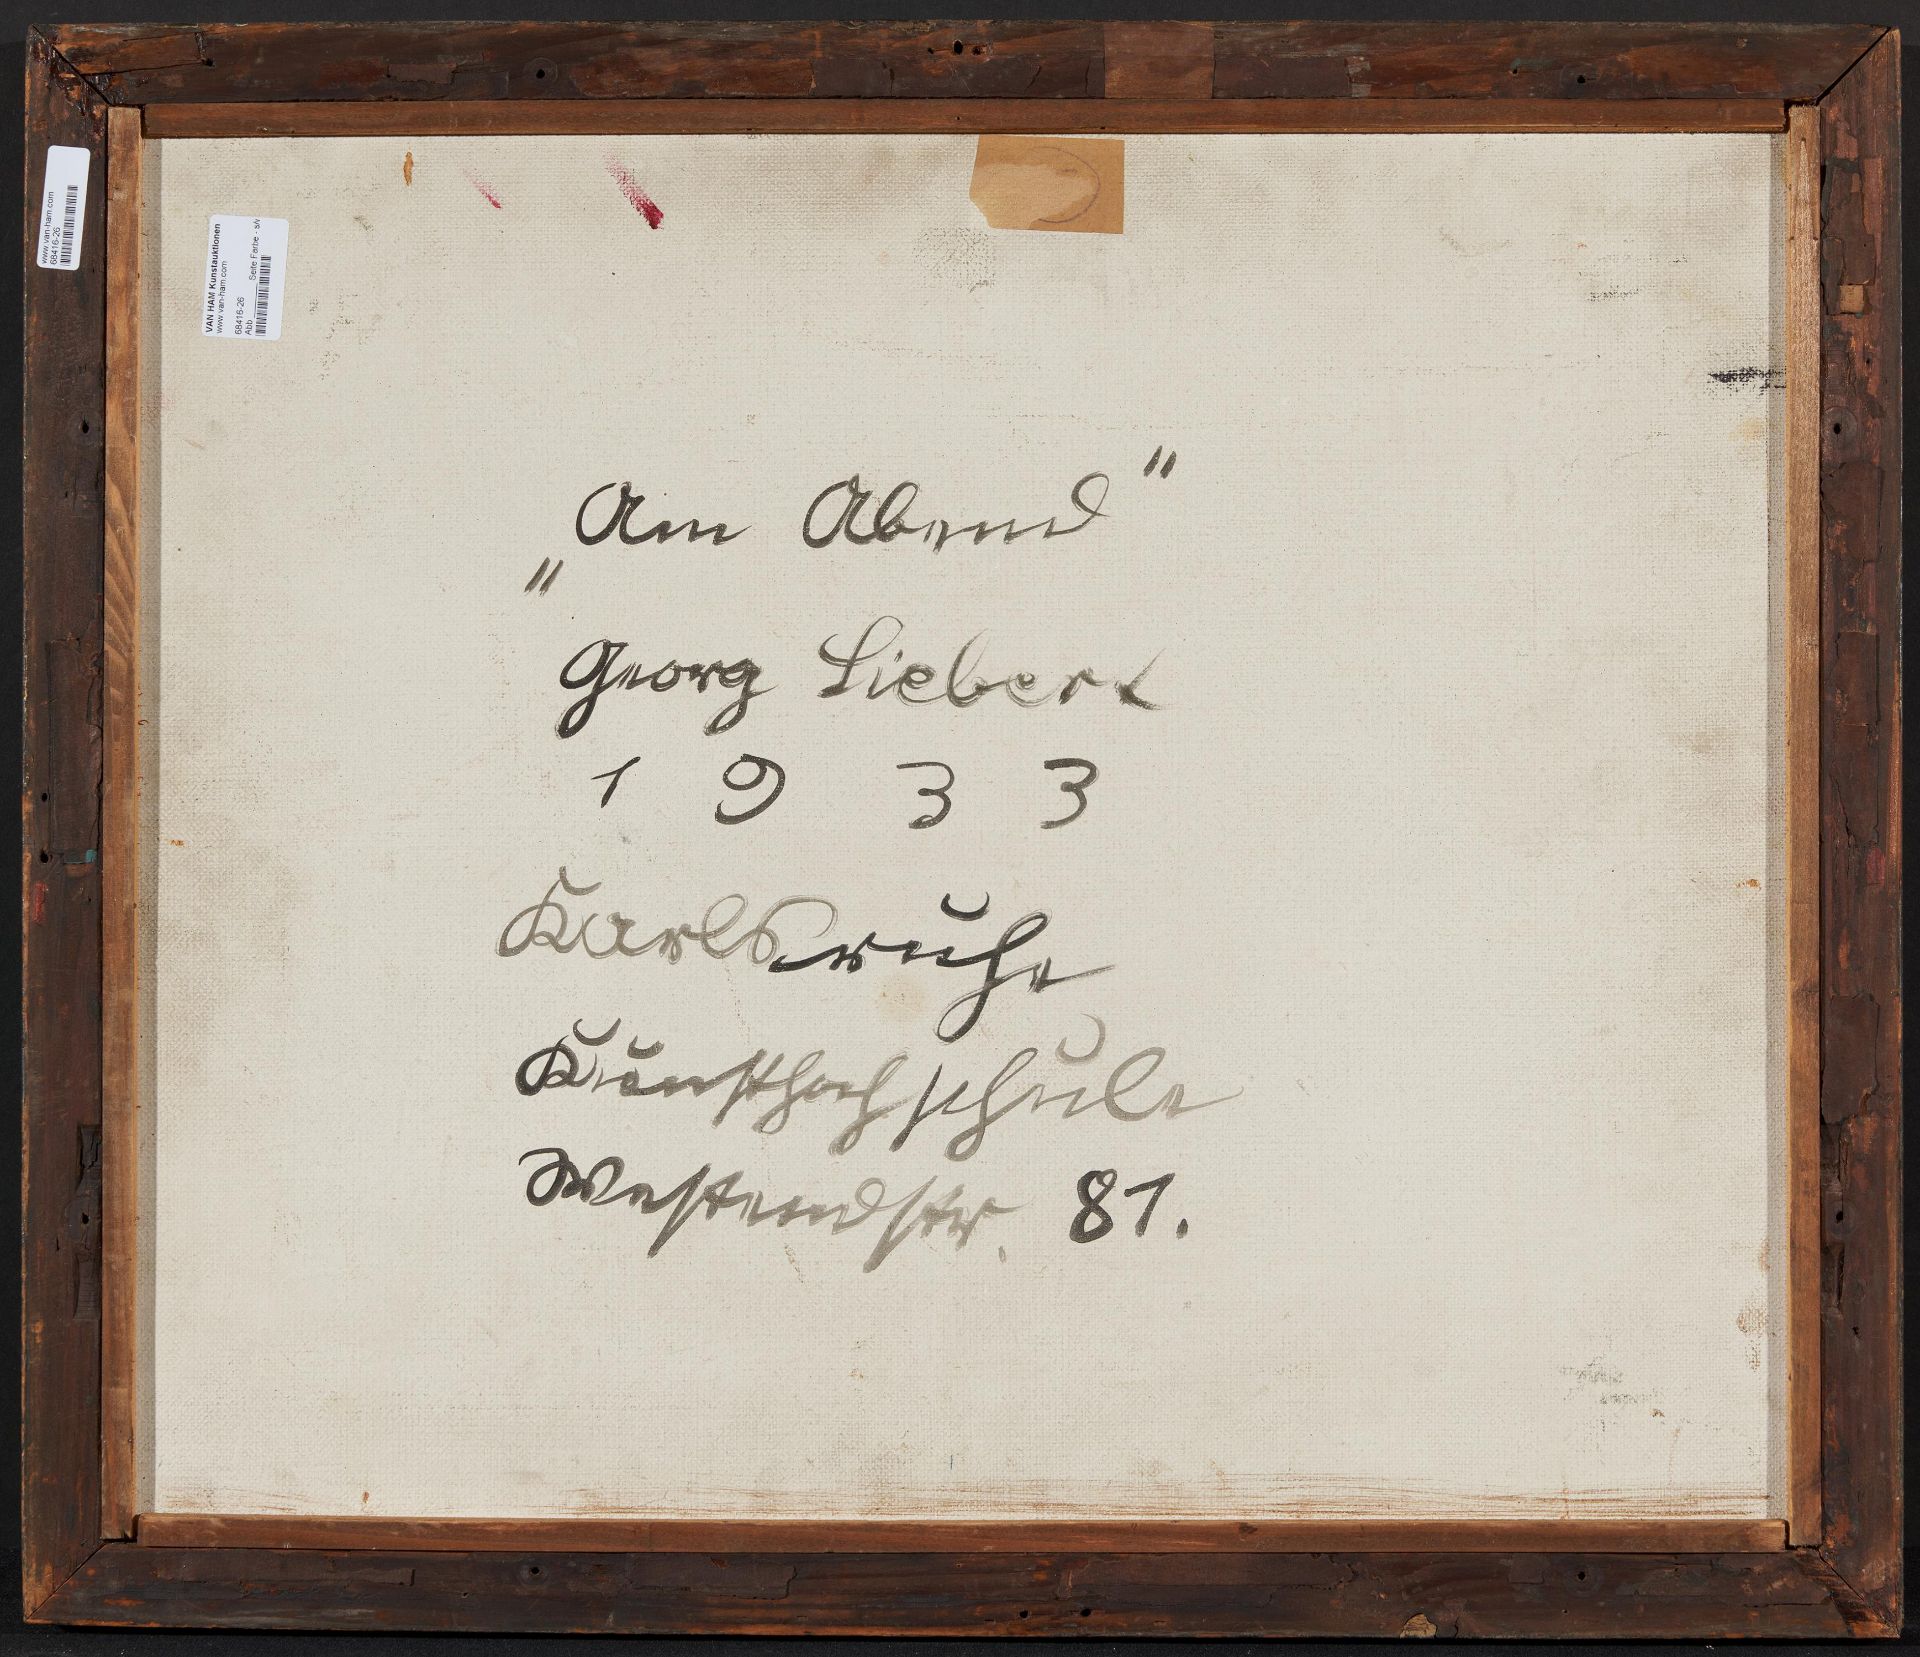 www.van-ham.com
68416-26
VAN HAM Kunstauktionen
www.van-ham.com
68416-26
Abb ____ Seite Farbe - s/w
„Am Abend"
Georg Siebert
1933
Karlsruhe
Kunsthochschule
Westendstr. 81.